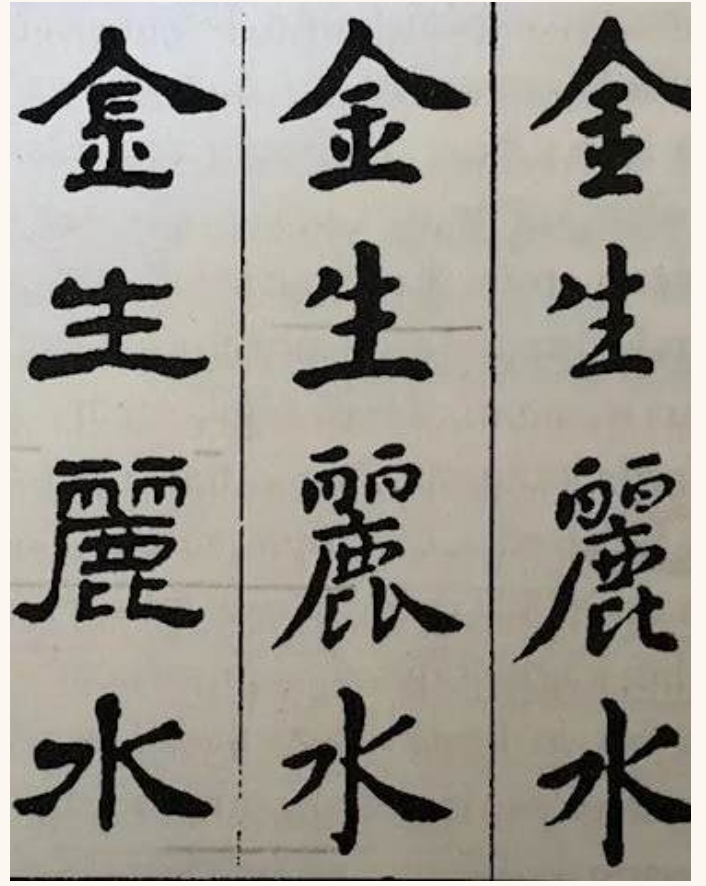 金生麗水
金生麗水
金生麗水